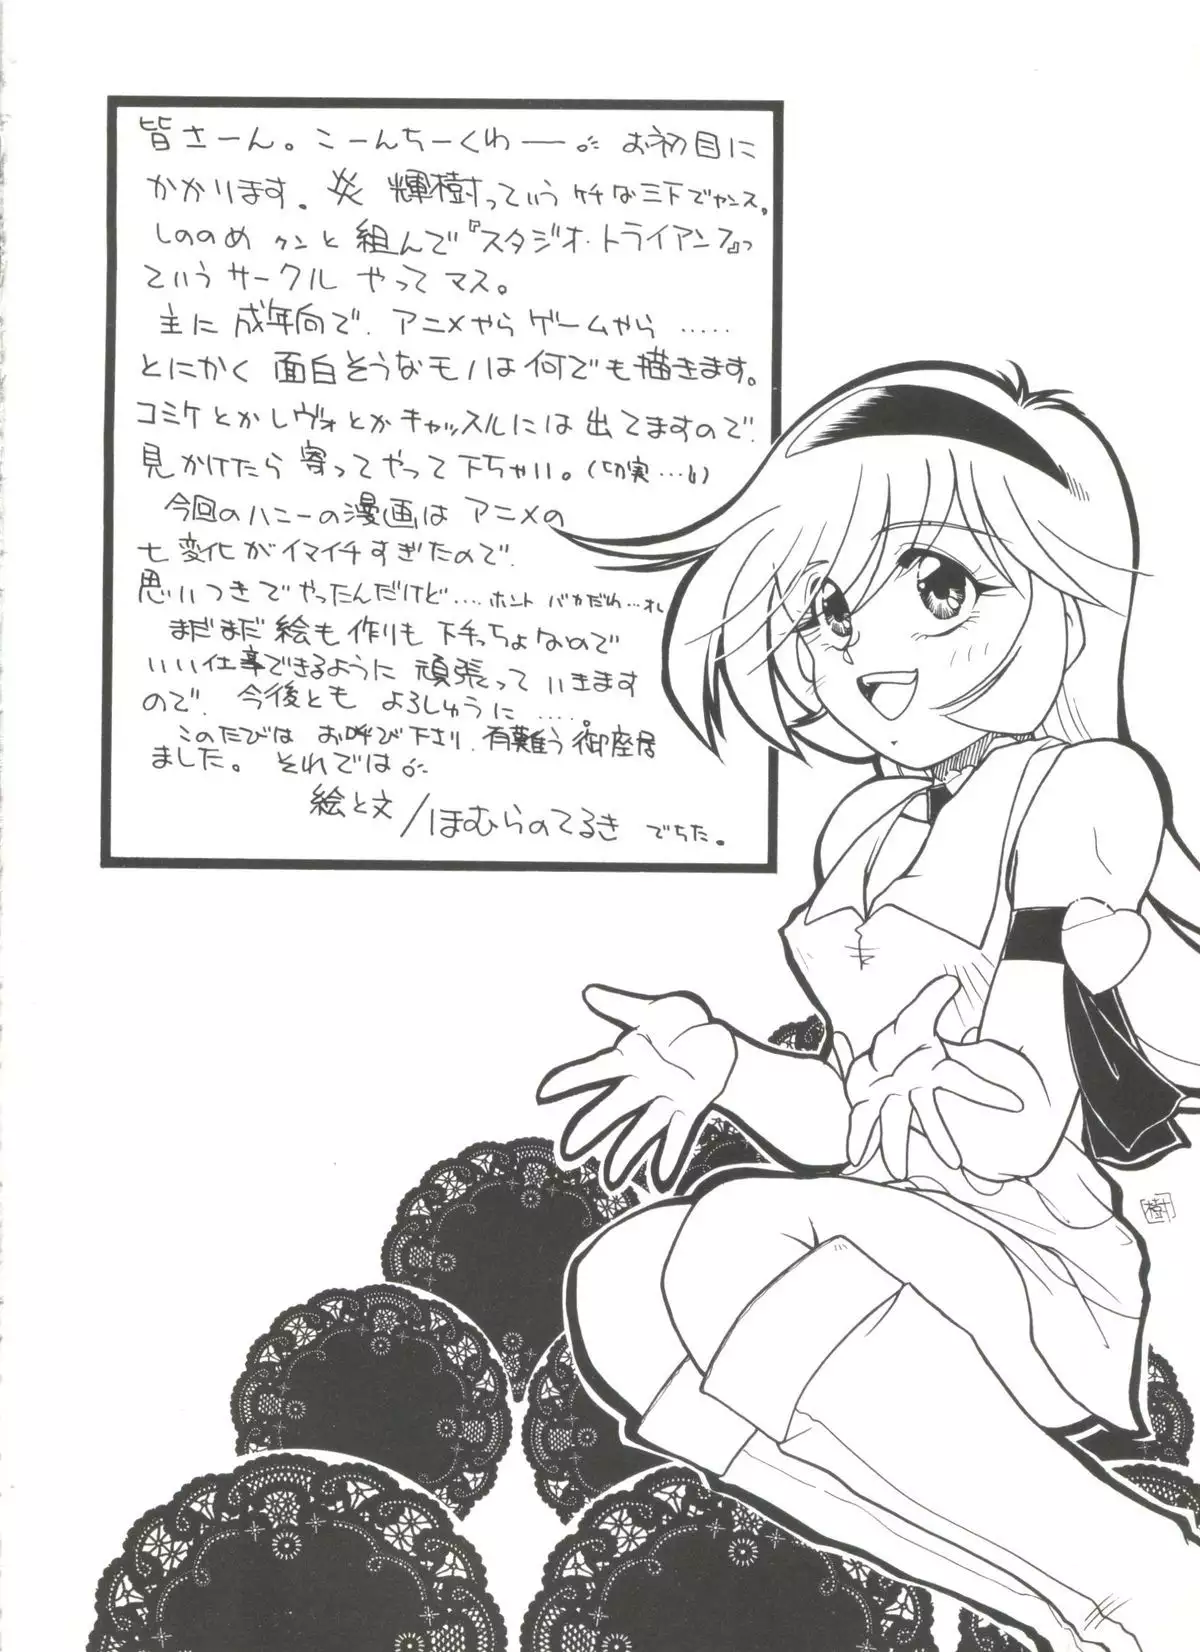 皆さーん。こーんちーくわー。お初目に
かかります。炎 輝樹っていうケチな三下でヤンス。
しののめクンと組んで『スタジオ・トライアング』っ
ていうサークルやってマス。
主に成年向で、アニメやらゲームやら……
とにかく面白そうなモノは何でも描きます。
コミケとかレヴォとかキャッスルには出てますので、
見かけたら寄ってやって下ちゃい。(切実…。)
今回のハニーの漫画はアニメの
七変化がイマイチすぎたので、
思いつきでやったんだけど....ホント バカだわ…オレ
まだまだ絵も作りも下手っちょなので
いい仕事できるように頑張っていきます
ので、今後ともよろしゅうに……。
このたびはお呼び下さり、有難う御座居
ました。それでは。
絵と文/ほむらのてるき でちた。
樹